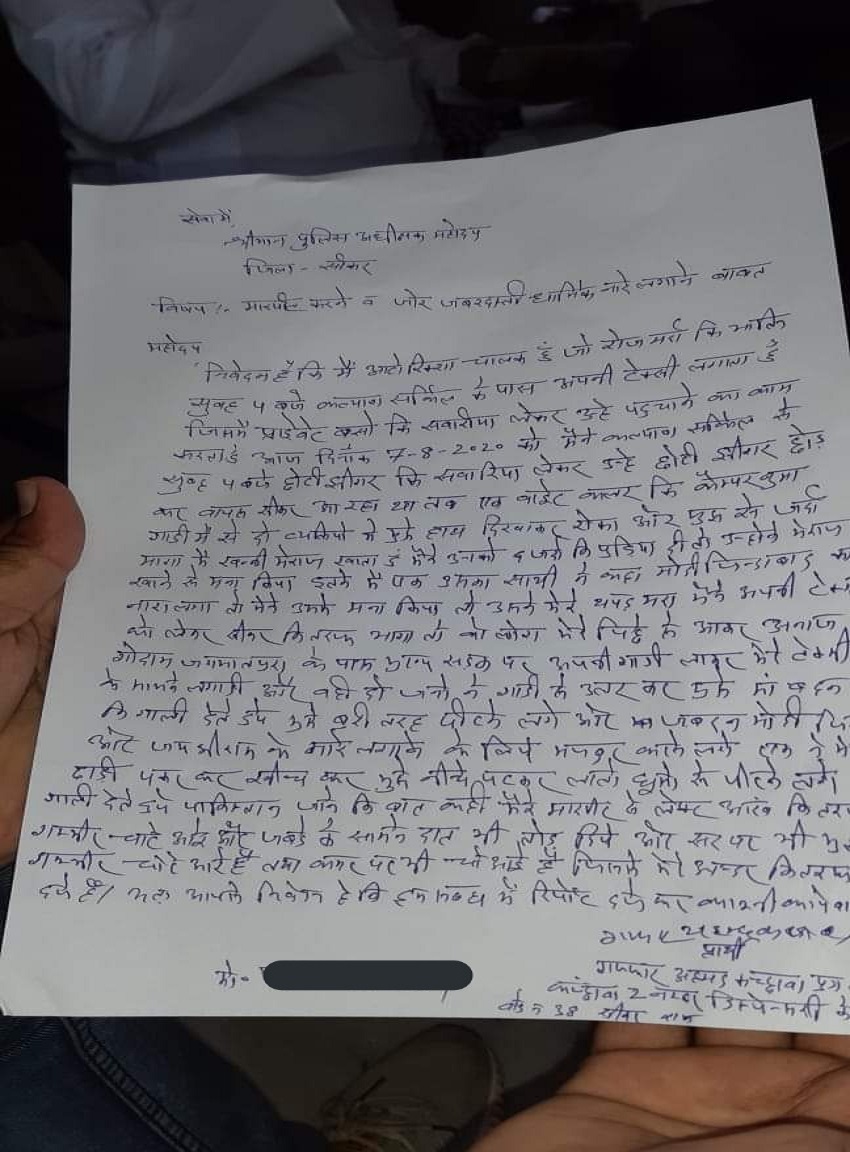 सेवा में,
श्रीमान पुलिस अधीक्षक महोदय
जिला - सीकर
विषय :- मारपीट करने व जोर जबरदस्ती धार्मिक नारे लगाने बाबत
महोदय
निवेदन है कि मैं आटो रिक्शा चालक हूं जो रोज मर्रा कि भांति
सुबह 4 बजे कल्याण सर्किल के पास अपनी टेक्सी लगाता हूँ
जिसमें प्राईवेट बसो कि सवारीया लेकर उन्हे पहुचाने का काम
करता हूं आज दिनांक 7-8-2020 को मैंने कल्याण सर्किल से
सुबह 4 बजे छोटी झीगर कि सवारिया लेकर उन्हे छोटी झीगर छोड़
कर वापस सीकर आ रहा था तब एक वाईट कलर कि कैम्परनुमा
गाडी में से दो व्यक्तियो ने मुझे हाथ दिखाकर रोका और मुझ से जर्दा
मांगा मैं खैनी मेराज खाता हूं मैंने उनको दर्जा कि पुडिया दी तो उन्होने मेराज
खाने से मना किया इतने में एक उनका साथी ने कहा मोदी जिन्दाबाद का
नारा लगा तो मैंने उनको मना किया तो उसने मेरे थप्पड़ मारा मैंने अपनी टेक्सी
को लेकर सीकर कि तरफ भागा तो वो लोग मेरे पिछे से आकर अनाज
गोदाम जगमालपुरा के पास मुख्य सडक पर अपनी गाडी लाकर मेरे टेक्सी
के सामने लगादी और वही दो जनो ने गाडी से उतर कर मुझे मां बहन
कि गाली देते हुये मुझे बुरी तरह पीटने लगे और जबरन मोदी जि
और जय श्री राम के नारे लगाने के लिये मजबुर करने लगे एक ने मे
दाढी पकड़ कर खीच कर मुझे नीचे पटकर लातो घुसो से पीटने लगे
गाली देते हुये पाकिस्तान जाने कि बात कही मेरे मारपीट से लेफ्ट आंख कि तरफ
गम्भीर चोटे आई और जबडे के सामने दांत भी तोड़ दिये और सर पर भी मु
गम्भीर चोटे आई है तथा कमर पर भी चोटे आई है जिससे मेरे अन्दर कि तरफ
दर्द है। अतः आपसे निवेदन है कि इस संबंध में रिपोर्ट दर्ज कर कानूनी कार्यवा
प्रार्थी
गफ्फार अहमद कच्छावा पुत्र
2 नम्बर डिस्पेन्सरी के
वार्ड न 38 सीकर राज
मो॰